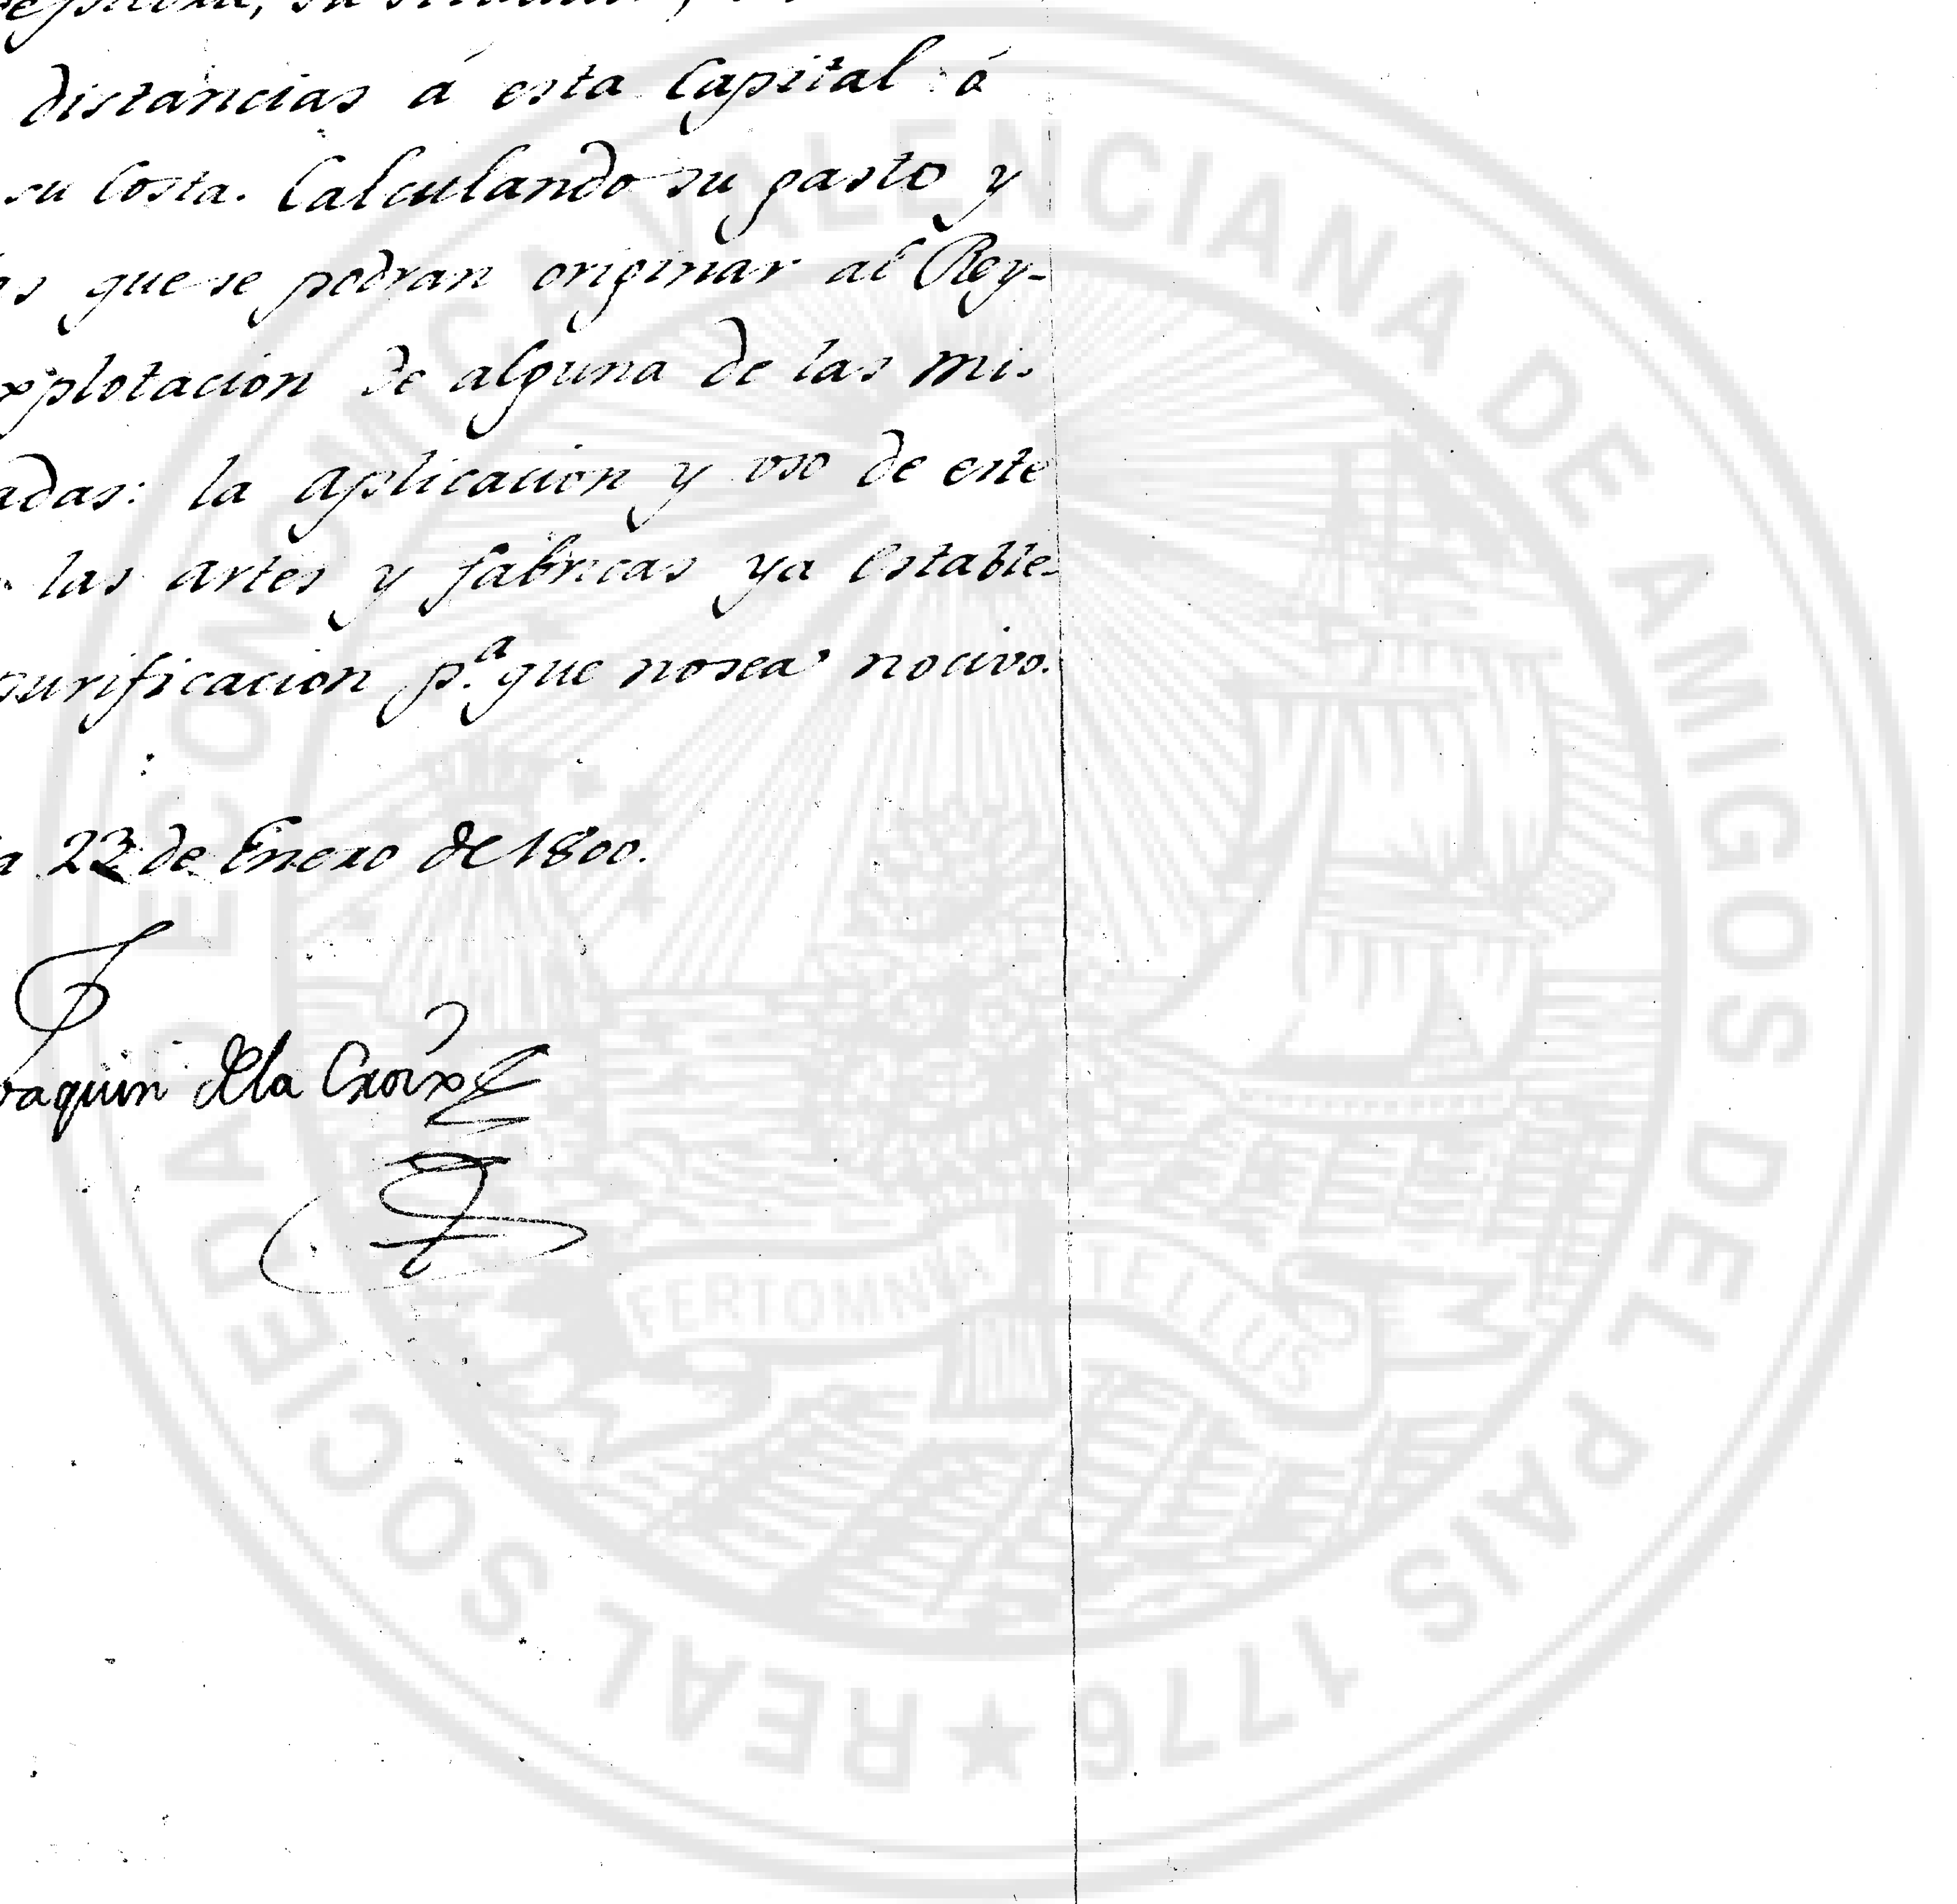 distancias á esta Capital ó
su Costa. Calculando su gasto y
que se podran originar al Rey-
xplotacion de alguna de las mi-
adas: la aplicacion y uso de este
las artes y fabricas ya estable-
purificacion p.ª que no sea nocivo.
a 22 de Enero de 1800.
oaquin de la Croix
REAL SOCIEDAD ECONOMICA VALENCIANA DE AMIGOS DEL PAIS 1776
FERT OMNIA TELLUS